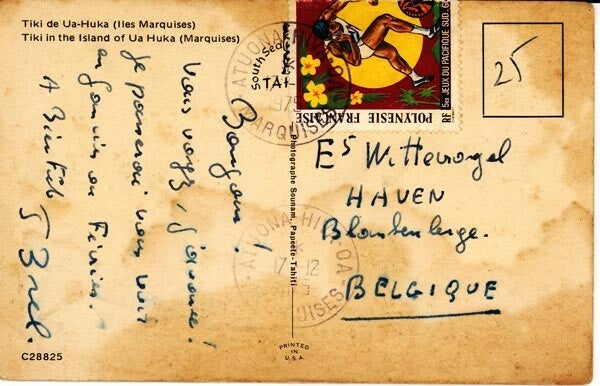 Tiki de Ua-Huka (Iles Marquises)
Tiki in the Island of Ua Huka (Marquises)
Bonjour!
Vous voyez, j'avance!
Je passerai vous voir
en Janvier ou Février.
A Bientôt
J Brel.
C28825
Photographe Sounam, Papeete-Tahiti
PRINTED
IN
U.S.A.
South Sea
TAI
ATUONA HI
MARQUISES
POLYNESIE FRANÇAISE
RF 5es JEUX DU PACIFIQUE SUD
25
Ets Wittevrongel
HAVEN
Blankenberge.
BELGIQUE
ATUONA-HIVA-OA
17-12
MARQUISES